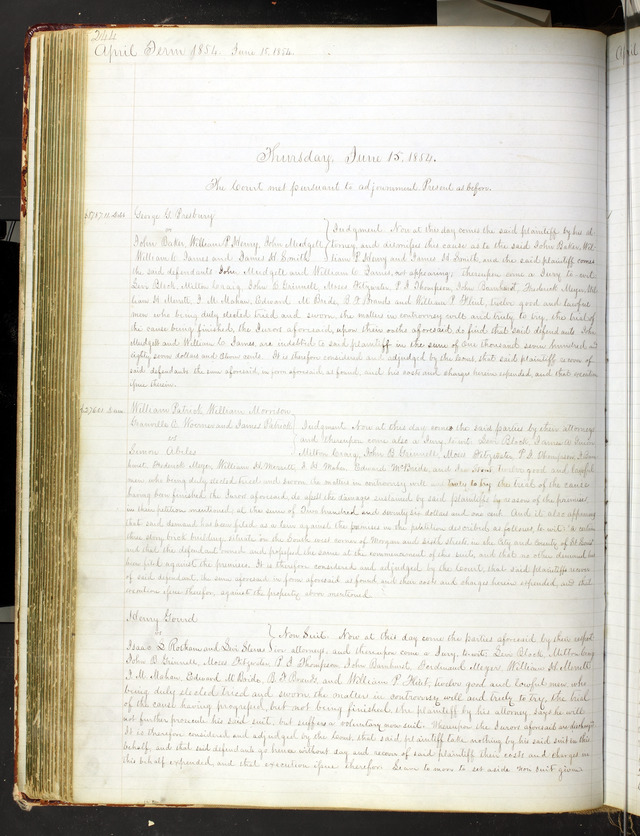 244
April Term 1854. June 15, 1854.
Thursday, June 15, 1854.
The Court met pursuant to adjournment. Present as before.
George G Presbury
vs
John Baker, William P Henry, John Mudgett
William C. James and James H Smith
Judgment. Now at this day comes the said plaintiff by his at
torney, and dismisses this cause as to the said John Baker, Wil
liam P. Henry and James H Smith, and the said plaintiff comes
the said defendants John Mudgett and William C. James, not appearing; thereupon come a Jury to wit
Levi Block, Milton Craig, John B Grinnell, Moses Fitzwater, P. I Thompson, John Barnhurst, Frederick Meyer, Wil
liam H. Merritt, I. M. Mahon, Edward McBride, B F Brand and William P Flint, twelve good and lawful
men who being duly elected tried and sworn the matters in controversy well and truly to try, the trial of
the cause being finished, the Jurors aforesaid, upon their oaths aforesaid, do find that said defendants John
Mudgett and William C. James, are indebted to said plaintiff in the sum of One thousand seven hundred and
eighty seven dollars and eleven cents. It is therefore considered and adjudged by the Court, that said plaintiff recover of
said defendants the sum aforesaid, in form aforesaid, as found, and his costs and charges herein expended, and that execution
issue therefor.
$1787.11
William Patrick, William Morrison
and James Patrick
vs
Simon Abeles
Judgment Now at this day come the said parties by their attorneys
and thereupon come also a Jury to wit. Levi Block,
Milton Craig, John B Grinnell, Moses Fitzwater P. I Thompson, I Barn
hurst Frederick Meyer, William H Merritt, I M Mahon Edward McBride, and twelve good and lawful
men who being duly elected tried and sworn the matters in controversy well and truly to try, the trial of the cause
having been finished, the Jurors aforesaid, do assess the damages sustained by said plaintiffs by reasons of the premises
in their petition mentioned at the sum of Two hundred and seventy six dollars and one cent. And it also appearing
that said demand has been filed as a lien against the premises in the petition described as follows, to wit: "a certain
three story brick building, situate on the South west corner of Morgan and sixth streets, in the City and County of St Louis"
and that the defendant owned and possessed the same at the commencement of this suit, and that no other demand has
been filed against the premises. It is therefore considered and adjudged by the Court, that said plaintiffs recover
of said defendant the sum aforesaid in form aforesaid as found and their costs and charges herein expended, and that
execution issue therefor, against the property above mentioned.
$276.01
Henry Gourd
vs
Isaac D
Non Suit. Now at this day come the parties aforesaid by their respect
ive attorneys, and thereupon come a Jury, to wit: Levi Block, Milton Craig
John B. Grinnell, Moses Fitzwater, P. I Thompson, John Barnhurst, Ferdinand Meyer, William H. Merritt
I. M. Mahon, Edward McBride, B. F Brand, and William P Flint, twelve good and lawful men, who
being duly elected, tried and sworn the matters in controversy, well and truly to try, the trial
of the cause having progressed, but not being finished, the plaintiff by his attorney says he will
not further prosecute his said suit, but suffers a voluntary non suit. Whereupon the Jurors aforesaid are discharged
It is therefore considered and adjudged by the Court, that said plaintiff take nothing by his said suit in this
behalf, and that said defendants go hence without day and recover of said plaintiff their costs and charges in
this behalf expended, and that execution issue therefor. Leave to move to set aside non suit given
April